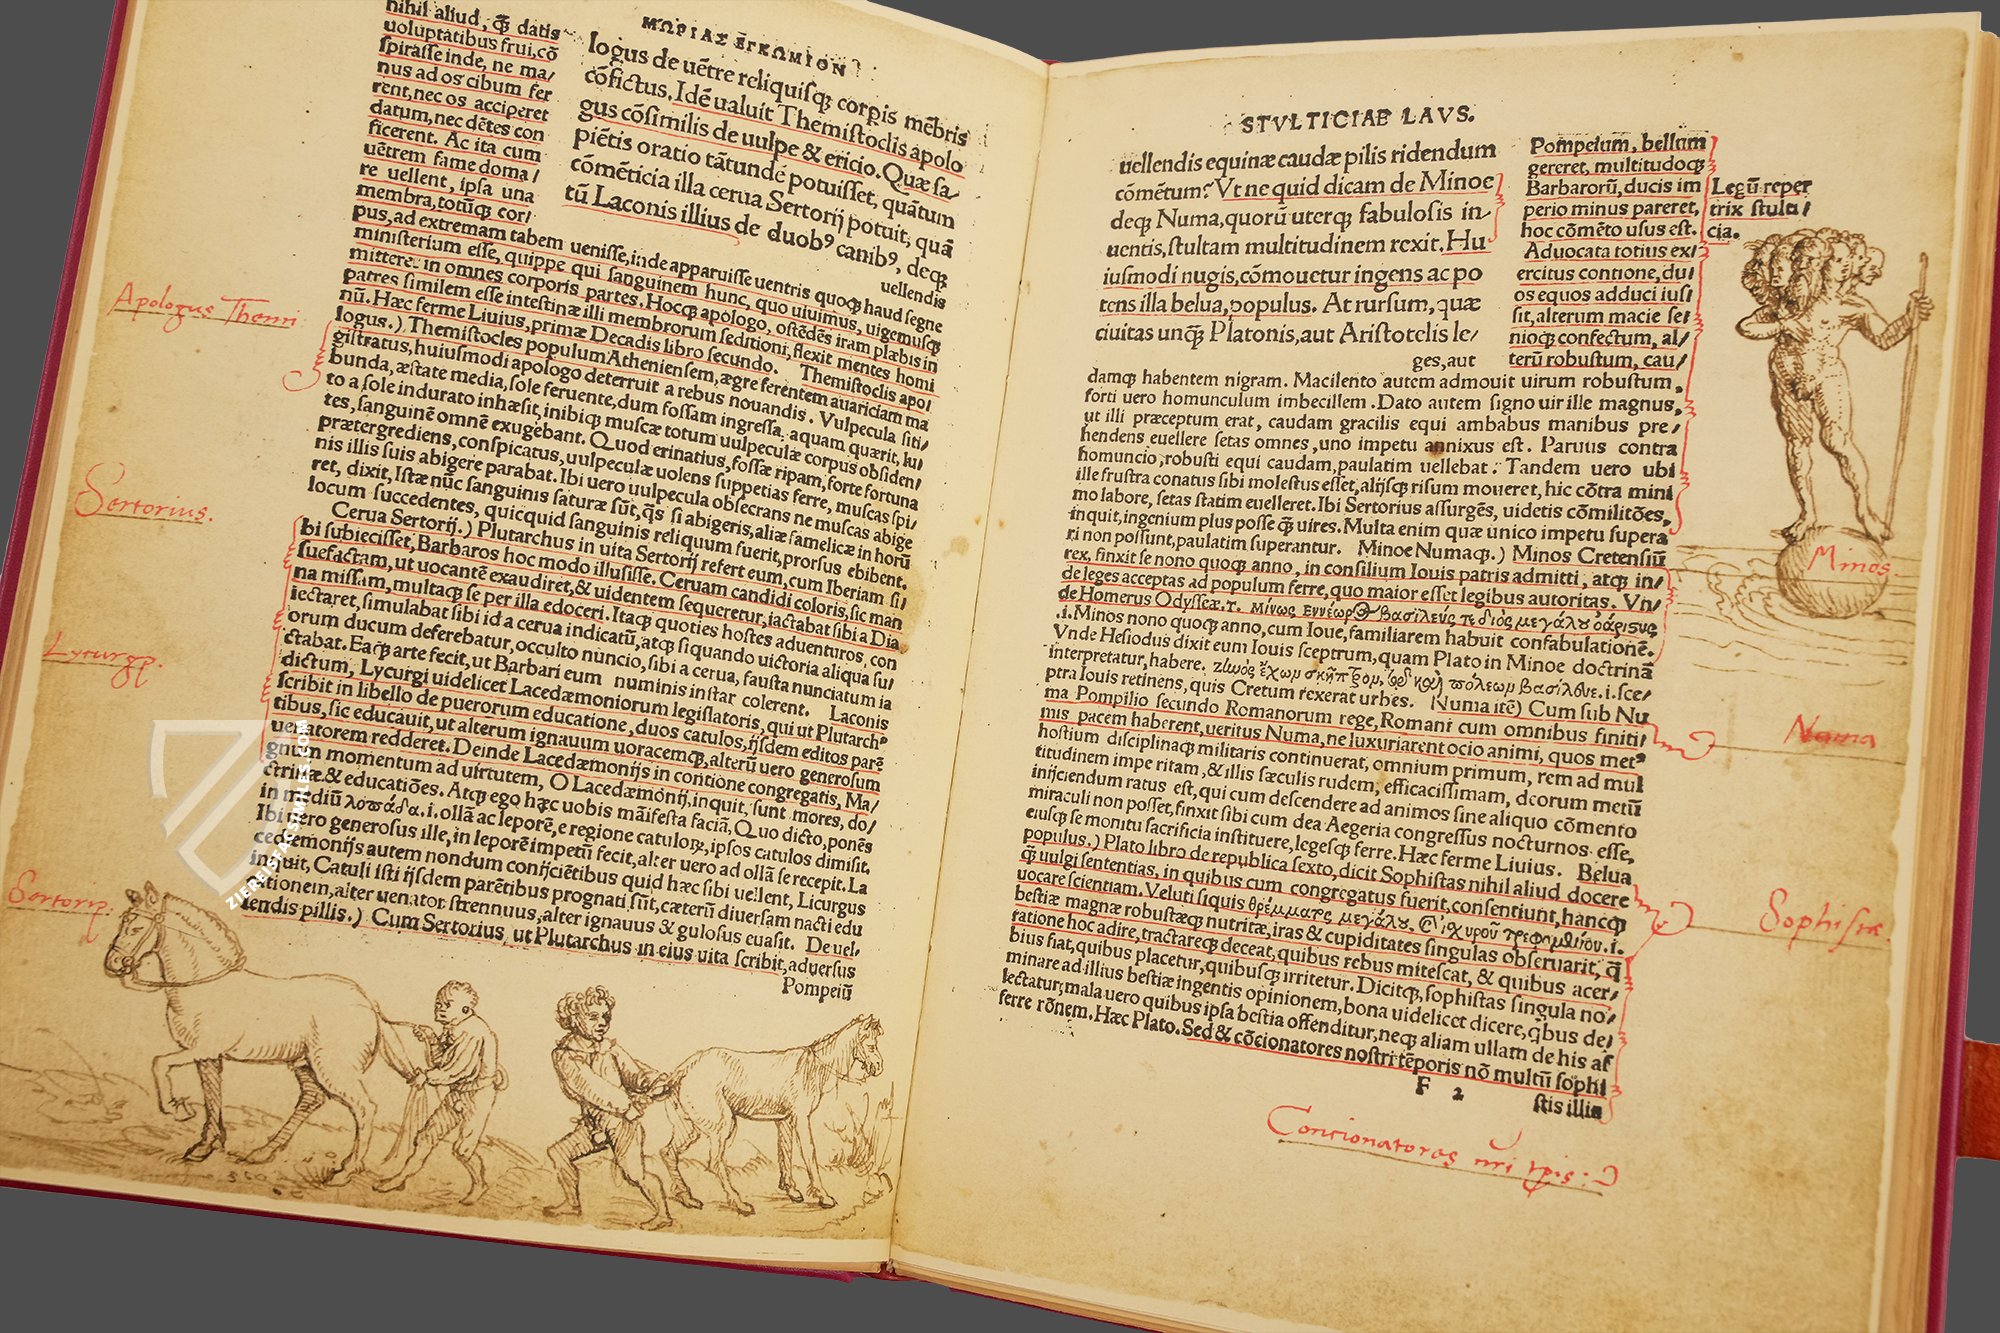 ΜΩΡΙΑΣ ΕΓΚΩΜΙΟΝ
nihil aliud, q̃ datis
uoluptatibus frui, cõ
ſpiraſſe inde, ne ma/
nus ad os cibum fer
rent, nec os acciperet
datum, nec dẽtes con
ficerent. Ac ita cum
uẽtrem fame doma/
re uellent, ipſa una
membra, totũq; cor/
logus de uẽtre reliquiſq; corꝑis mẽbris
cõfictus. Idẽ ualuit Themiſtoclis apolo
gus cõſimilis de uulpe & ericio. Quæ ſa/
piẽtis oratio tãtundẽ potuiſſet, quãtum
cõmẽticia illa cerua Sertorij potuit, quã
tũ Laconis illius de duobꝰ canibꝰ, deq;
uellendis
pus, ad extremam tabem ueniſſe, inde apparuiſſe uentris quoq; haud ſegne
miniſterium eſſe, quippe qui ſanguinem hunc, quo uiuimus, uigemuſq;
mitteret in omnes corporis partes. Hocq; apologo, oſtẽdẽs iram plæbis in
patres ſimilem eſſe inteſtinæ illi membrorum ſeditioni, flexit mentes homi
nũ. Hæc ferme Liuius, primæ Decadis libro ſecundo. Themiſtoclis apo/
logus.) Themiſtocles populum Athenienſem, ægre ferentem auariciam ma
giſtratus, huiuſmodi apologo deterruit a rebus nouandis. Vulpecula ſiti/
bunda, æſtate media, ſole feruente, dum foſſam ingreſſa aquam quærit, lu/
to a ſole indurato inhæſit, inibiq; muſcæ totum uulpeculæ corpus obſiden/
tes, ſanguinẽ omnẽ exugebant. Quod erinatius, foſſæ ripam, forte fortuna
prætergrediens, conſpicatus, uulpeculæ uolens ſuppetias ferre, muſcas ſpi/
nis illis ſuis abigere parabat. Ibi uero uulpecula obſecrans ne muſcas abige
ret, dixit, Iſtæ nũc ſanguinis ſaturæ ſũt, q̃s ſi abigeris, aliæ famelicæ in horũ
locum ſuccedentes, quicquid ſanguinis reliquum fuerit, prorſus ebibent.
Cerua Sertorij.) Plutarchus in uita Sertorij refert eum, cum Iberiam ſi/
bi ſubieciſſet, Barbaros hoc modo illuſiſſe. Ceruam candidi coloris, ſic man
ſuefactam, ut uocantẽ exaudiret, & uidentem ſequeretur, iactabat ſibi a Dia
na miſſam, multaq; ſe per illa edoceri. Itaq; quoties hoſtes aduenturos, con
iectaret, ſimulabat ſibi id a cerua indicatũ, atq; ſi quando uictoria aliqua ſu/
orum ducum deferebatur, occulto nuncio, ſibi a cerua, fauſta nunciatum ia
ctabat. Eaq; arte fecit, ut Barbari eum numinis inſtar colerent. Laconis
dictum, Lycurgi uidelicet Lacedæmoniorum legiſlatoris, qui ut Plutarchꝰ
ſcribit in libello de puerorum educatione, duos catulos, ijſdem editos parẽ
tibus, ſic educauit, ut alterum ignauum uoracemq;, alterũ uero generoſum
uenatorem redderet. Deinde Lacedæmonijs in contione congregatis, Ma/
gnum momentum ad uirtutem, O Lacedæmonij, inquit, ſunt mores, do/
ctrinæ & educatiões. Atq; ego hæc uobis mãifeſta faciã, Quo dicto, ponẽs
in mediũ λοπάδα .i. ollã ac leporẽ, e regione catulorꝝ, ipſos catulos dimiſit.
Ibi uero generoſus ille, in leporẽ impetũ fecit, alter uero ad ollã ſe recepit. La
cedæmonijs autem nondum conijciẽtibus quid hæc ſibi uellent, Licurgus
inquit, Catuli iſti ijſdem parẽtibus prognati ſũt, cæterũ diuerſam nacti edu
cationem, alter uenator ſtrennuus, alter ignauus & guloſus euaſit. De uel/
lendis pillis.) Cum Sertorius, ut Plutarchus in eius uita ſcribit, aduerſus
Pompeiũ
Apologus Themi
Sertorius.
Lycurgꝰ.
Sertoriꝰ.
ZIEREISFACSIMILES.COM
STVLTICIAE LAVS.
uellendis equinæ caudæ pilis ridendum
cõmẽtum? Vt ne quid dicam de Minoe
deq; Numa, quorũ uterq; fabuloſis in/
uentis, ſtultam multitudinem rexit. Hu
iuſmodi nugis, cõmouetur ingens ac po
tens illa belua, populus. At rurſum, quæ
ciuitas unq̃ Platonis, aut Ariſtotelis le/
ges, aut
Pompeium, bellum
gereret, multitudoq;
Barbarorũ, ducis im
perio minus pareret,
hoc cõmẽto uſus eſt.
Aduocata totius exi
ercitus contione, du/
os equos adduci iuſi
ſit, alterum macie ſe/
nioq; confectum, al/
terũ robuſtum, cau/
Legũ reper
trix ſtulti/
cia.
damq; habentem nigram. Macilento autem admouit uirum robuſtum,
forti uero homunculum imbecillem. Dato autem ſigno uir ille magnus,
ut illi præceptum erat, caudam gracilis equi ambabus manibus pre/
hendens euellere ſetas omnes, uno impetu annixus eſt. Paruus contra
homuncio, robuſti equi caudam, paulatim uellebat. Tandem uero ubi
ille fruſtra conatus ſibi moleſtus eſſet, alijſq; riſum moueret, hic cõtra mini
mo labore, ſetas ſtatim euelleret. Ibi Sertorius aſſurgẽs, uidetis cõmilitões,
inquit, ingenium plus poſſe q̃ uires. Multa enim quæ unico impetu ſupera
ri non poſſunt, paulatim ſuperantur. Minoe Numaq;.) Minos Cretenſiũ
rex, finxit ſe nono quoq; anno, in conſilium Iouis patris admitti, atq; in/
de leges acceptas ad populum ferre, quo maior eſſet legibus autoritas. Vn/
de Homerus Odyſſeæ.τ. Μίνως ἐννέωρος βασίλευε Διὸς μεγάλου ὀαριστής
.i. Minos nono quoq; anno, cum Ioue, familiarem habuit confabulationẽ.
Vnde Heſiodus dixit eum Iouis ſceptrum, quam Plato in Minoe doctrinã
interpretatur, habere. ζηνὸς ἔχων σκῆπτρον, πόλεων βασίλευε .i. ſce/
ptra Iouis retinens, quis Cretum rexerat urbes. Numa itẽ) Cum ſub Nu
ma Pompilio ſecundo Romanorum rege, Romani cum omnibus finiti/
mis pacem haberent, ueritus Numa, ne luxuriarent ocio animi, quos metꝰ
hoſtium diſciplinaq; militaris continuerat, omnium primum, rem ad mul
titudinem imperitam, & illis ſæculis rudem, efficaciſſimam, deorum metũ
inijciendum ratus eſt, qui cum deſcendere ad animos ſine aliquo cõmento
miraculi non poſſet, finxit ſibi cum dea Aegeria congreſſus nocturnos eſſe,
eiuſq; ſe monitu ſacrificia inſtituere, legeſq; ferre. Hæc ferme Liuius. Belua
populus.) Plato libro de republica ſexto, dicit Sophiſtas nihil aliud docere
q̃ uulgi ſententias, in quibus cum congregatus fuerit, conſentiunt, hancq;
uocare ſcientiam. Veluti ſiquis θρέμματος μεγάλου, ἰσχυροῦ τρεφομένου .i.
beſtiæ magnæ robuſtæq; nutritæ, iras & cupiditates ſingulas obſeruarit, q̃
ratione hoc adire, tractareq; deceat, quibus rebus miteſcat, & quibus acer/
bius fiat, quibus placetur, quibuſq; irritetur. Dicitq;, ſophiſtas ſingula no/
minare ad illius beſtiæ ingentis opinionem, bona uidelicet dicere, q̃bus de/
lectatur, mala uero quibus ipſa beſtia offenditur, neq; aliam ullam de his af
ferre rõnem. Hæc Plato. Sed & cõcionatores noſtri tẽporis nõ multũ ſophi
F 2 ſtis illis
Minos.
Numa
Sophiſtæ.
Concionatores nr̃i tp̃is: